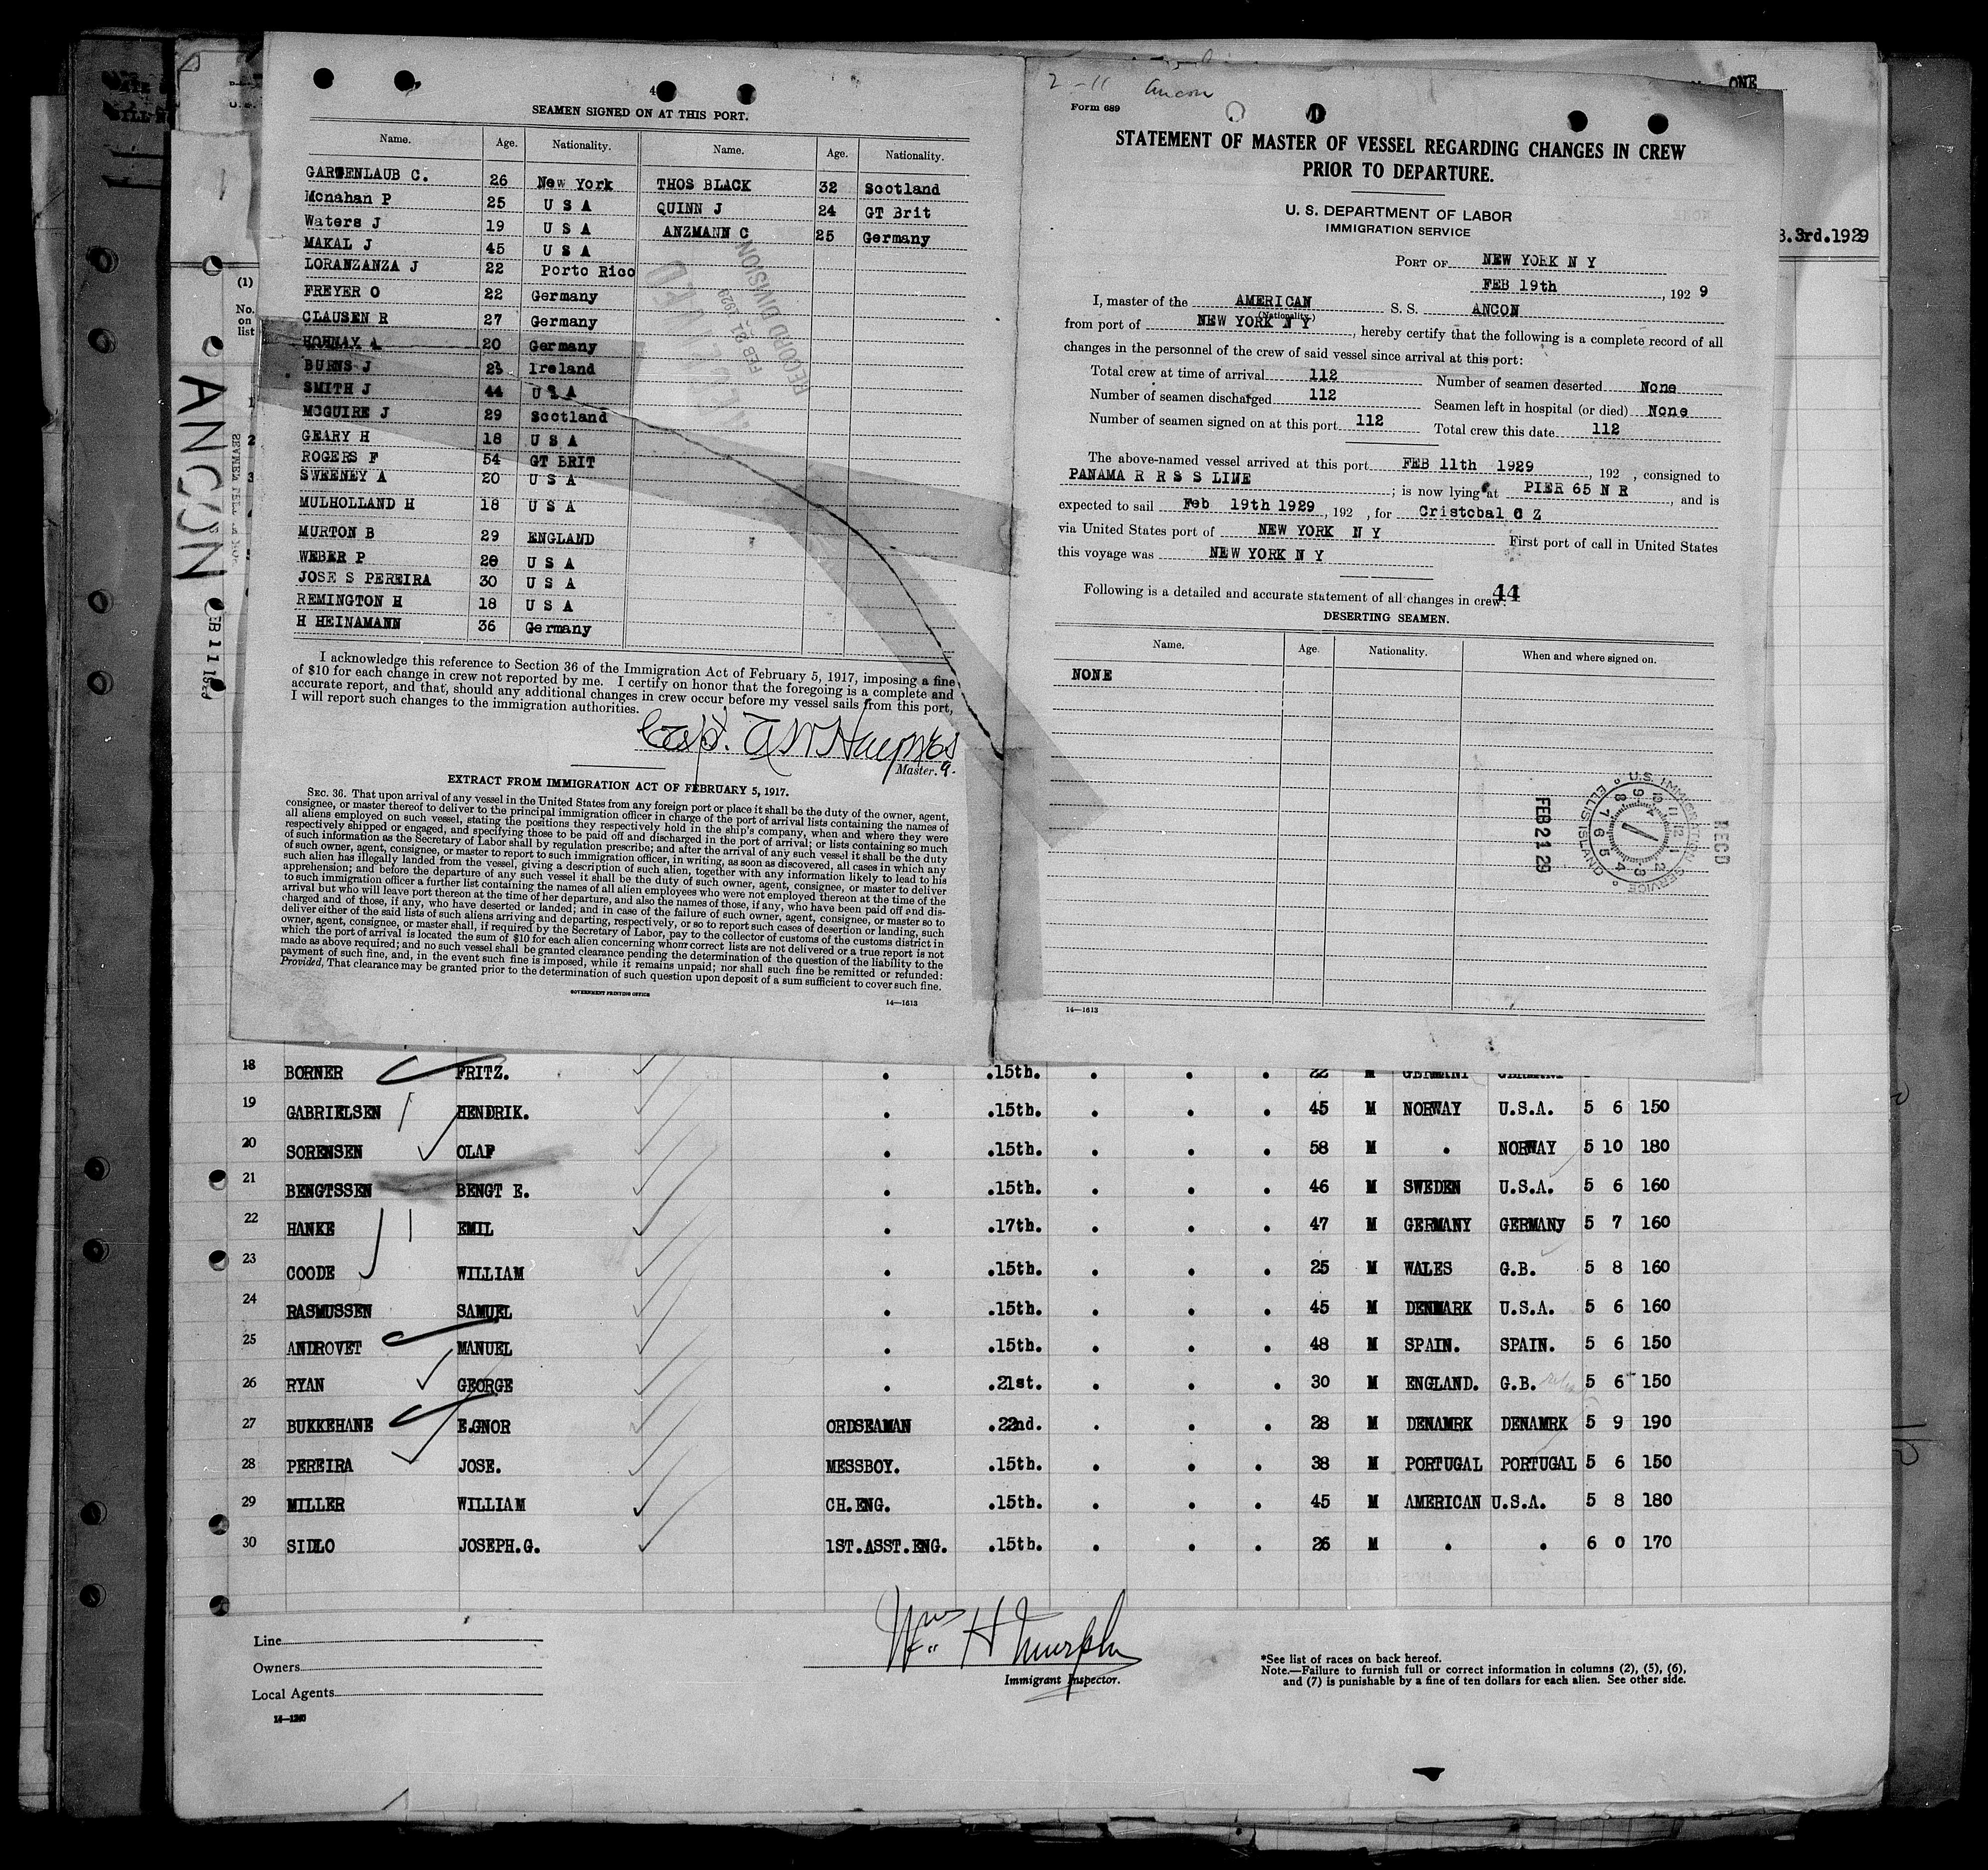 4
SEAMEN SIGNED ON AT THIS PORT.
Name. Age. Nationality. Name. Age. Nationality.
GARTENLAUB C. 26 New York THOS BLACK 32 Scotland
Mcnahan P 25 U S A QUINN J 24 GT Brit
Waters J 19 U S A ANZMANN C 25 Germany
MAKAL J 45 U S A
LORANZANZA J 22 Porto Rico
FREYER O 22 Germany
CLAUSEN R 27 Germany
HOHMAY A 20 Germany
BURNS J 23 Ireland
SMITH J 44 U S A
MCGUIRE J 29 Scotland
GEARY H 18 U S A
ROGERS F 54 GT BRIT
SWEENEY A 20 U S A
MULHOLLAND H 18 U S A
MURTON B 29 ENGLAND
WEBER P 28 U S A
JOSE S PEREIRA 30 U S A
REMINGTON H 18 U S A
H HEINAMANN 36 Germany
RECORD DIVISION
FEB 21 1929
I acknowledge this reference to Section 36 of the Immigration Act of February 5, 1917, imposing a fine
of $10 for each change in crew not reported by me. I certify on honor that the foregoing is a complete and
accurate report, and that, should any additional changes in crew occur before my vessel sails from this port,
I will report such changes to the immigration authorities.
Capt.
Master.
EXTRACT FROM IMMIGRATION ACT OF FEBRUARY 5, 1917.
SEC. 36. That upon arrival of any vessel in the United States from any foreign port or place it shall be the duty of the owner, agent,
consignee, or master thereof to deliver to the principal immigration officer in charge of the port of arrival lists containing the names of
all aliens employed on such vessel, stating the positions they respectively hold in the ship's company, when and where they were
respectively shipped or engaged, and specifying those to be paid off and discharged in the port of arrival; or lists containing so much
of such information as the Secretary of Labor shall by regulation prescribe; and after the arrival of any such vessel it shall be the duty
of such owner, agent, consignee, or master to report to such immigration officer, in writing, as soon as discovered, all cases in which any
such alien has illegally landed from the vessel, giving a description of such alien, together with any information likely to lead to his
apprehension; and before the departure of any such vessel it shall be the duty of such owner, agent, consignee, or master to deliver
to such immigration officer a further list containing the names of all alien employees who were not employed thereon at the time of the
arrival but who will leave port thereon at the time of her departure, and also the names of those, if any, who have been paid off and dis-
charged and of those, if any, who have deserted or landed; and in case of the failure of such owner, agent, consignee, or master so to
deliver either of the said lists of such aliens arriving and departing, respectively, or so to report such cases of desertion or landing, such
owner, agent, consignee, or master shall, if required by the Secretary of Labor, pay to the collector of customs of the customs district in
which the port of arrival is located the sum of $10 for each alien concerning whom correct lists are not delivered or a true report is not
made as above required; and no such vessel shall be granted clearance pending the determination of the question of the liability to the
payment of such fine, and, in the event such fine is imposed, while it remains unpaid; nor shall such fine be remitted or refunded:
Provided, That clearance may be granted prior to the determination of such question upon deposit of a sum sufficient to cover such fine.
GOVERNMENT PRINTING OFFICE
14—1613
2-11 Ancon
Form 689
STATEMENT OF MASTER OF VESSEL REGARDING CHANGES IN CREW
PRIOR TO DEPARTURE.
U. S. DEPARTMENT OF LABOR
IMMIGRATION SERVICE
PORT OF NEW YORK N Y
FEB 19th, 1929
I, master of the AMERICAN S. S. ANCON
(Nationality.)
from port of NEW YORK N Y, hereby certify that the following is a complete record of all
changes in the personnel of the crew of said vessel since arrival at this port:
Total crew at time of arrival 112 Number of seamen deserted None
Number of seamen discharged 112 Seamen left in hospital (or died) None
Number of seamen signed on at this port 112 Total crew this date 112
The above-named vessel arrived at this port FEB 11th 1929, 192 , consigned to
PANAMA R R S S LINE; is now lying at PIER 65 N R, and is
expected to sail Feb 19th 1929, 192 , for Cristobal C Z
via United States port of NEW YORK N Y First port of call in United States
this voyage was NEW YORK N Y
Following is a detailed and accurate statement of all changes in crew: 44
DESERTING SEAMEN.
Name. Age. Nationality. When and where signed on.
NONE
U.S. IMMIGRATION SERVICE
ELLIS ISLAND
FEB 21 29
RECD
14—1613
ONE
3rd.1929
(1)
No.
on
list
1
2
3
ANCON
18 BORNER FRITZ. . .15th. . . . 22 M GERMANY GERMANY
19 GABRIELSEN HENDRIK. . .15th. . . . 45 M NORWAY U.S.A. 5 6 150
20 SORENSEN OLAF . .15th. . . . 58 M . NORWAY 5 10 180
21 BENGTSSEN BENGT E. . .15th. . . . 46 M SWEDEN U.S.A. 5 6 160
22 HANKE EMIL . .17th. . . . 47 M GERMANY GERMANy 5 7 160
23 COODE WILLIAM . .15th. . . . 25 M WALES G.B. 5 8 160
24 RASMUSSEN SAMUEL . .15th. . . . 45 M DENMARK U.S.A. 5 6 160
25 ANDROVET MANUEL . .15th. . . . 48 M SPAIN. SPAIN. 5 6 150
26 RYAN GEORGE . .21st. . . . 30 M ENGLAND. G.B. 5 6 150
27 BUKKEHANE E.GNOR ORDSEAMAN .22nd. . . . 28 M DENAMRK DENAMRK 5 9 190
28 PEREIRA JOSE. MESSBOY. .15th. . . . 38 M PORTUGAL PORTUGAL 5 6 150
29 MILLER WILLIAM CH.ENG. .15th. . . . 45 M AMERICAN U.S.A. 5 8 180
30 SIDLO JOSEPH.G. 1ST.ASST.ENG. .15th. . . . 26 M . . 6 0 170
Line
Owners
Local Agents
Wm H Murphy
Immigrant Inspector.
*See list of races on back hereof.
Note.—Failure to furnish full or correct information in columns (2), (5), (6),
and (7) is punishable by a fine of ten dollars for each alien. See other side.
14—1240